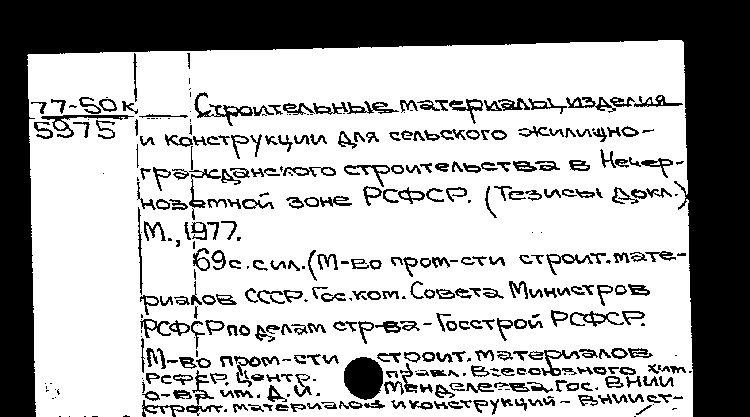 77-50к Строительные материалы, изделия
5975
и конструкции для сельского жилищно-
гражданского строительства в Нечер-
ноземной зоне РСФСР. (Тезисы докл.)
М., 1977.
69 с. с ил. (М-во пром-сти строит. мате-
риалов СССР. Гос. ком. Совета Министров
РСФСР по делам стр-ва - Госстрой РСФСР.
М-во пром-сти строит. материалов
РСФСР. Центр. правл. Всесоюзного хим.
о-ва им. Д.И. Менделеева. Гос. ВНИИ
строит. материалов и конструкций - ВНИИст-